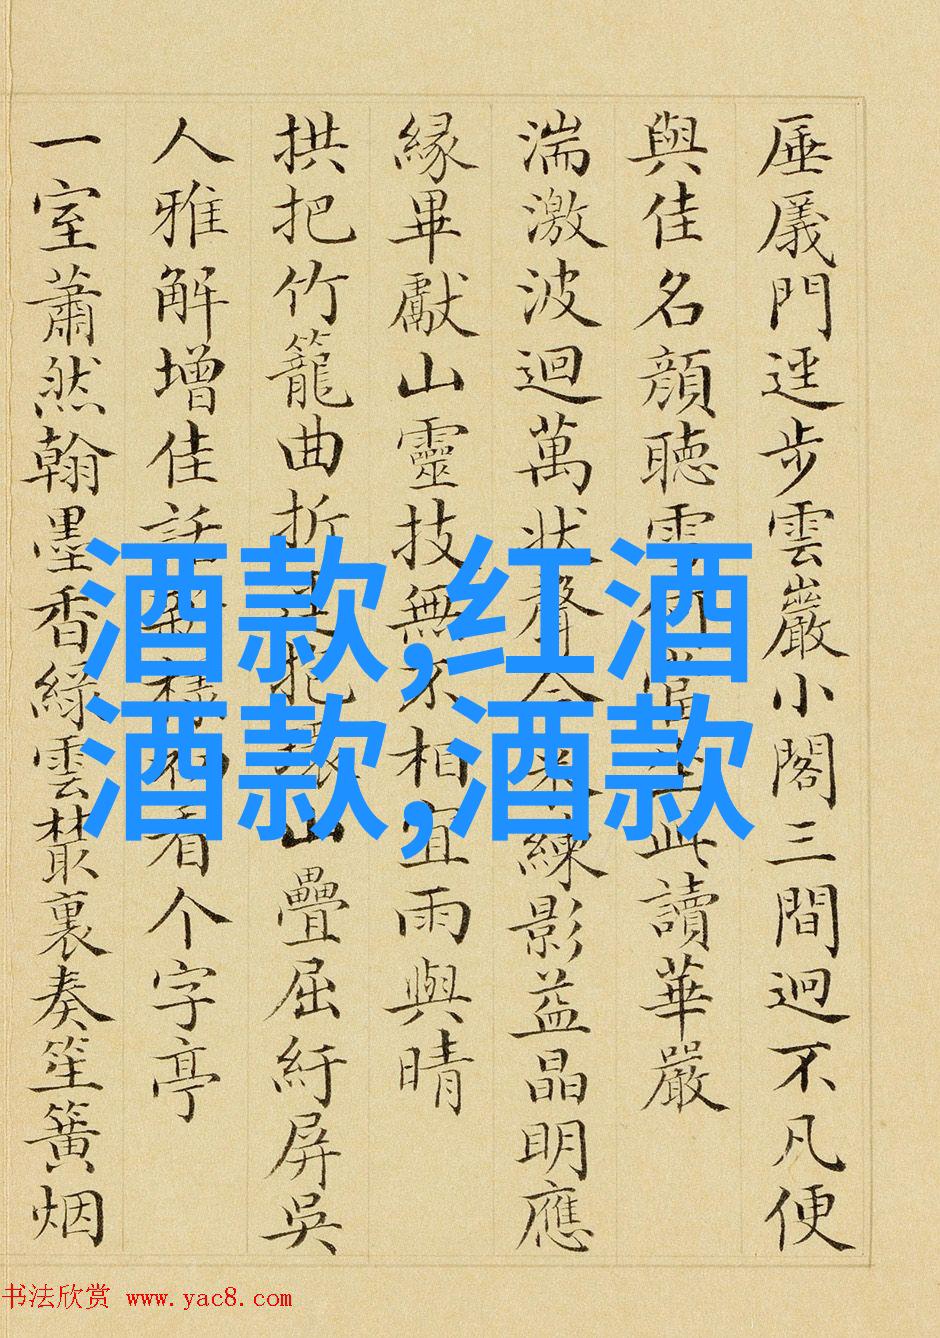 厜㕒門逕步雲巖小閣三間迥不凡便
與佳名顏聽此讀華嚴
湍激波迴萬狀聲練影益晶明應
緣畢獻山靈技無不相宜雨與晴
拱把竹籠曲折山疊屈紆屏吳
人雅解增佳話看个字亭
一室蕭然翰墨香綠雲叢裏奏笙簧烟
酒款,红酒
酒款,酒款
书法欣赏 www.yac8.com